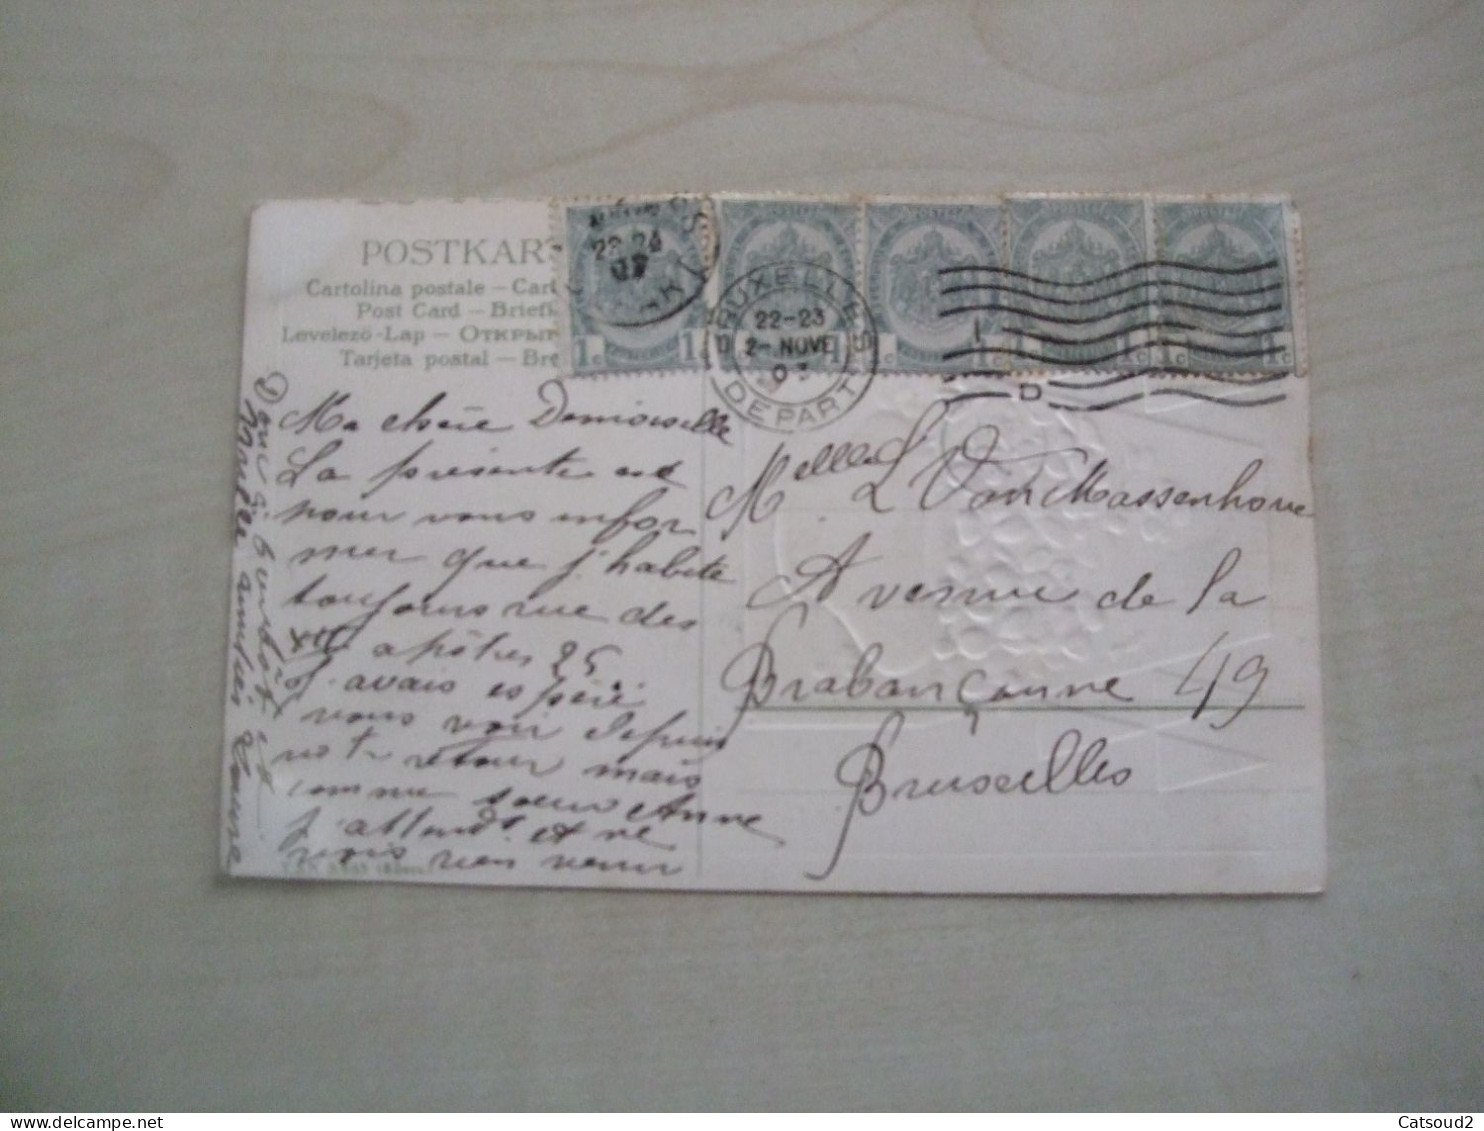 POSTKAR
Cartolina postale – Cart
Post Card – Briefk
Levelezö-Lap – Открыт
Tarjeta postal – Bre
22-24
07
BRUXELLES
22-23
2-NOVE
DEPART
1c 1c
1
1c 1c
1 1c
1c 1c
D
Ma chère Demoiselle
La présente est
pour vous infor
mer que j'habite
toujours rue des
XII apôtres 25
J'avais espéré
vous voir depuis
votr retour mais
comme soeur Anne
j'attends et ne
vois rien venir
amitiés
Melle L Van Massenhove
Avenue de la
Brabançonne 49
Bruxelles
Catsoud2